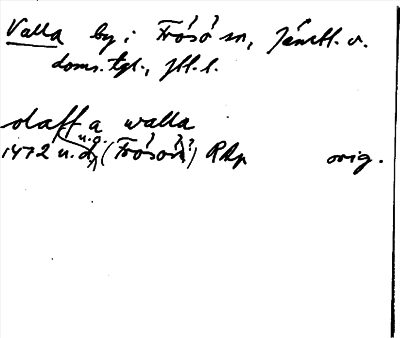 Valla by i Frösö sn, Jämtl. v.
doms. tgl., Jtl. l.
olaff a walla
u.g.
1472 u.d. (Frösön?) RAp orig.